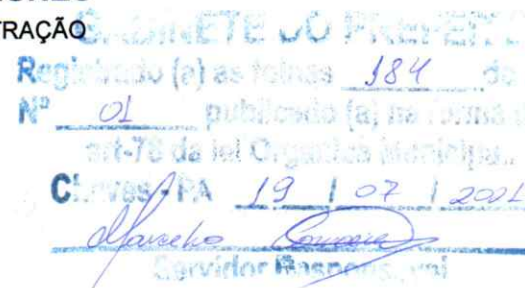 TRAÇÃO
GABINETE DO PREFEITO
Registrado (a) as folhas 184 do
Nº 01 publicado (a) na forma
art-78 da lei Organica Municipal
Chaves-PA 19 / 07 /
Marcelho
Servidor Responsável